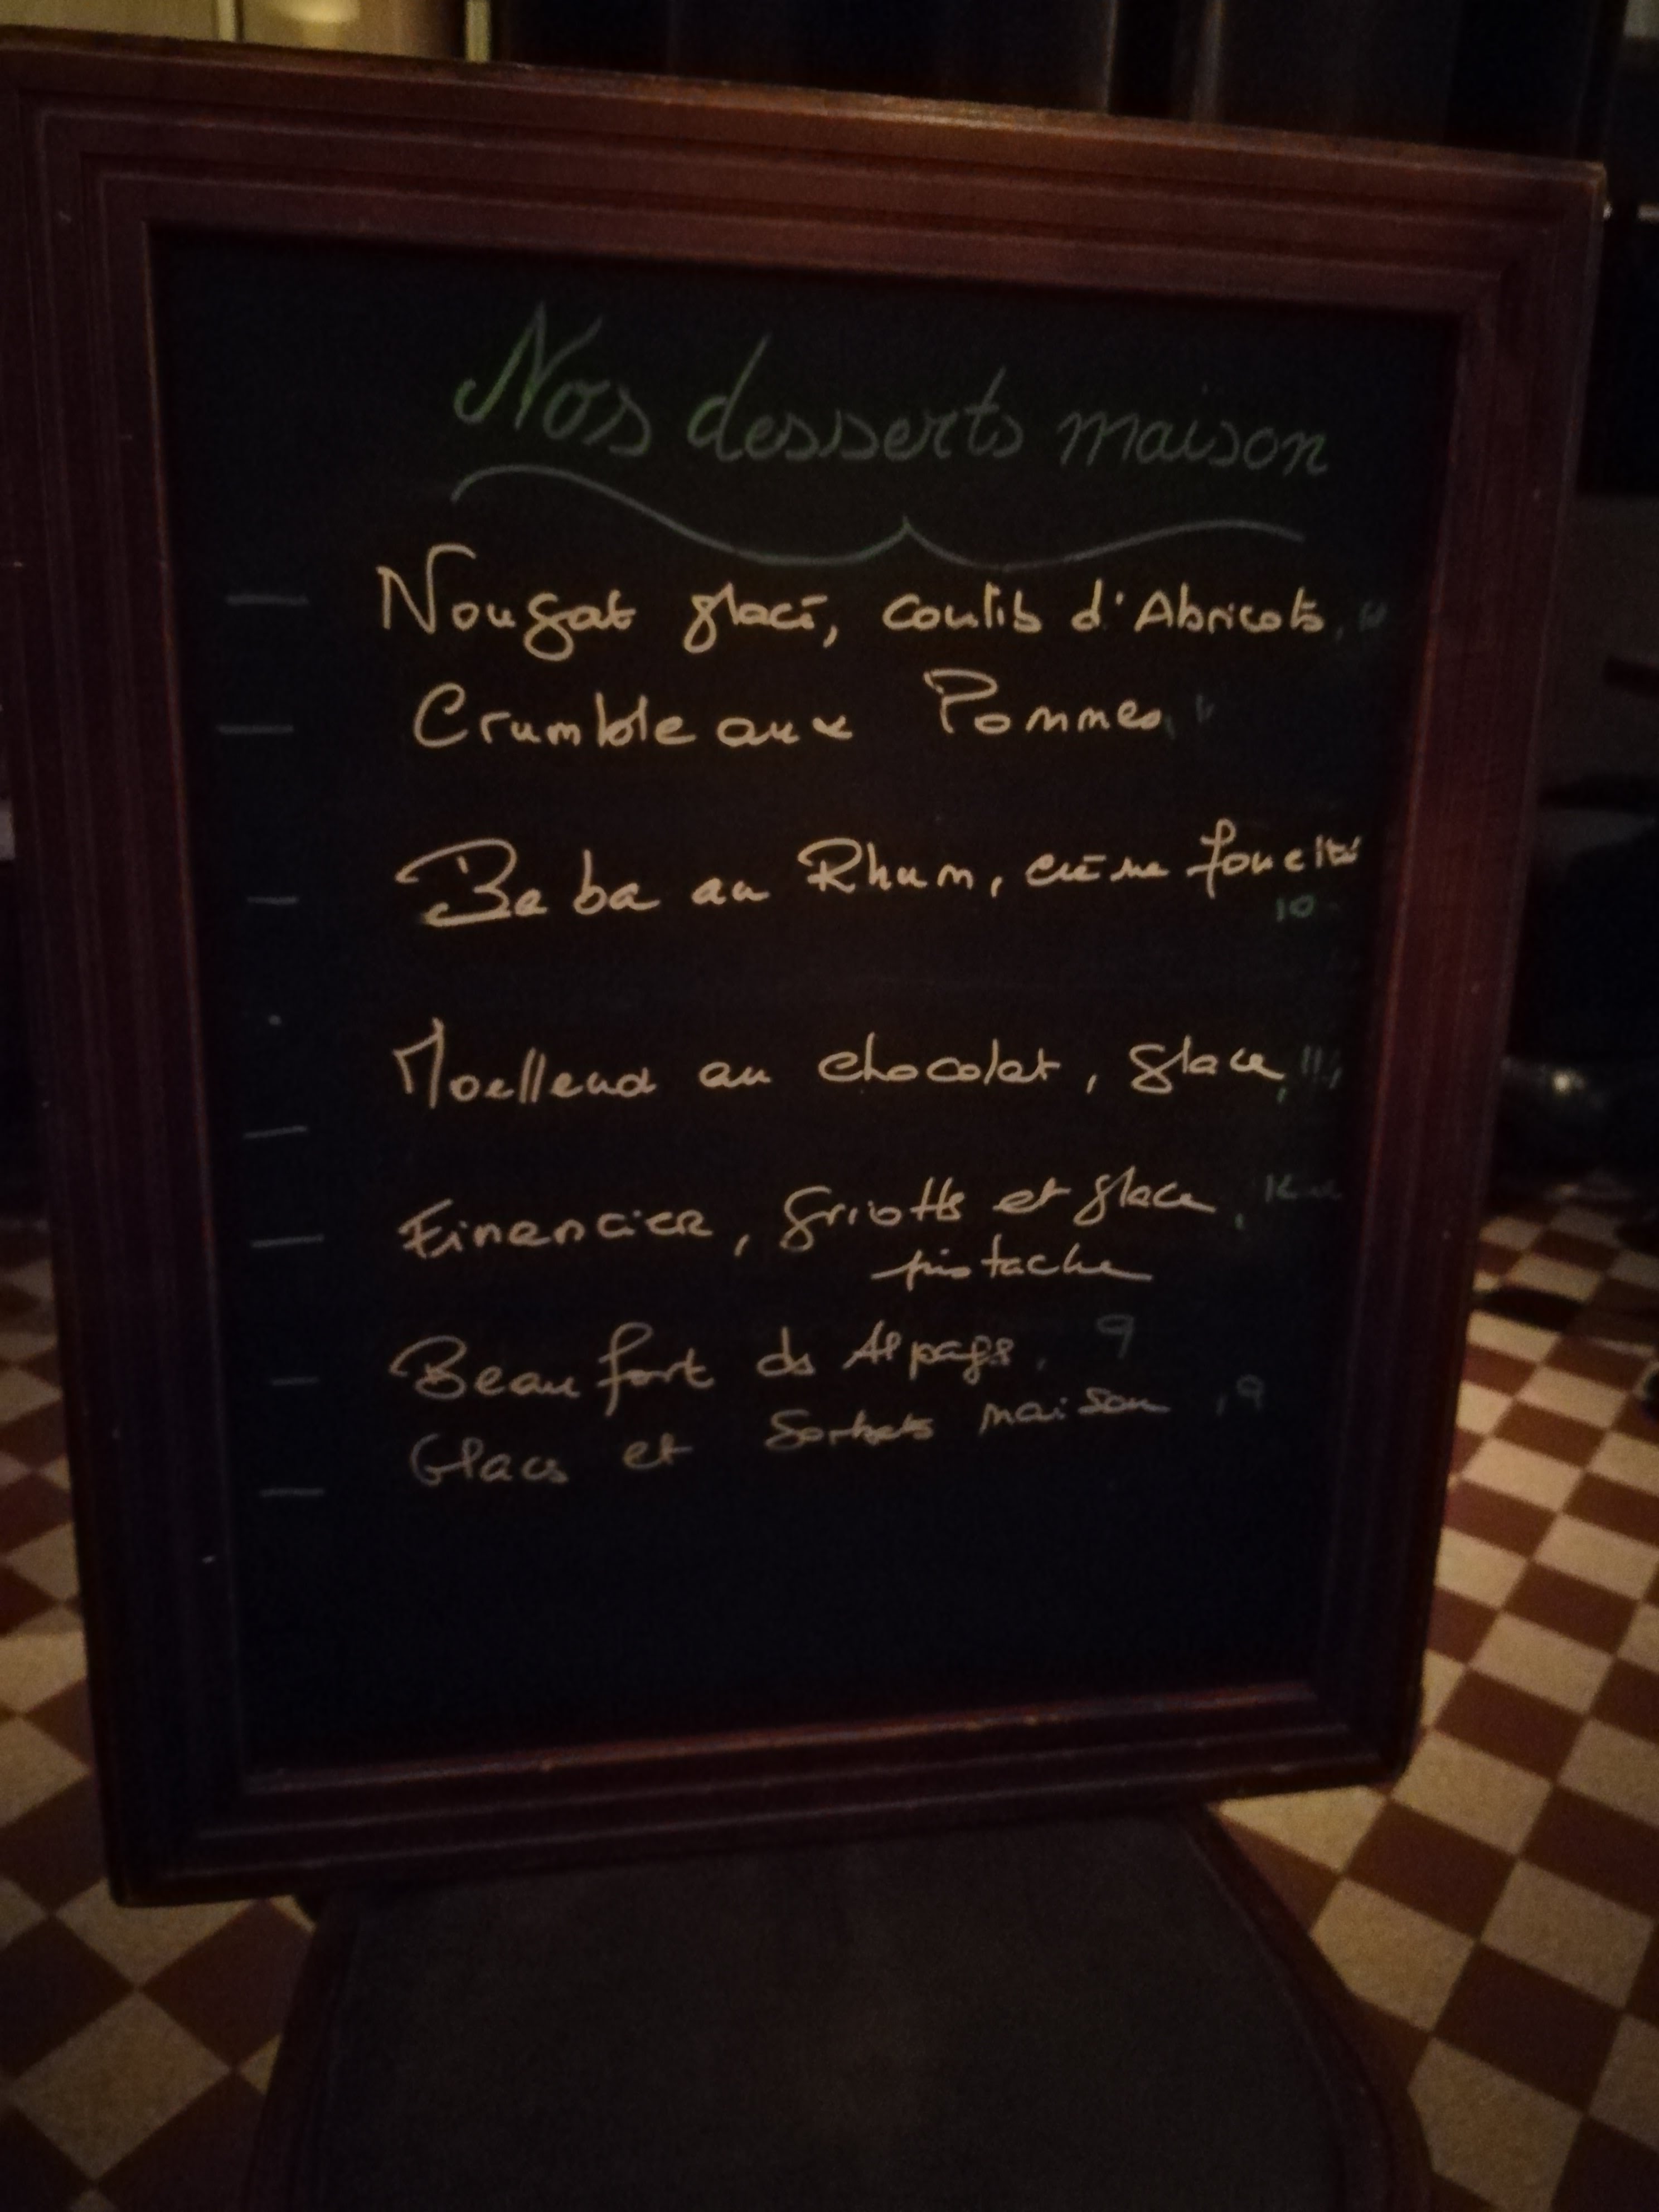 Nos desserts maison
Nougat glacé, coulis d'Abricots,
Crumble aux Pommes,
Baba au Rhum, crème fouettée
10
Moelleux au chocolat, glace,
Financier, griotte et glace,
pistache
Beaufort des Alpages, 9
Glaces et Sorbets maison, 9